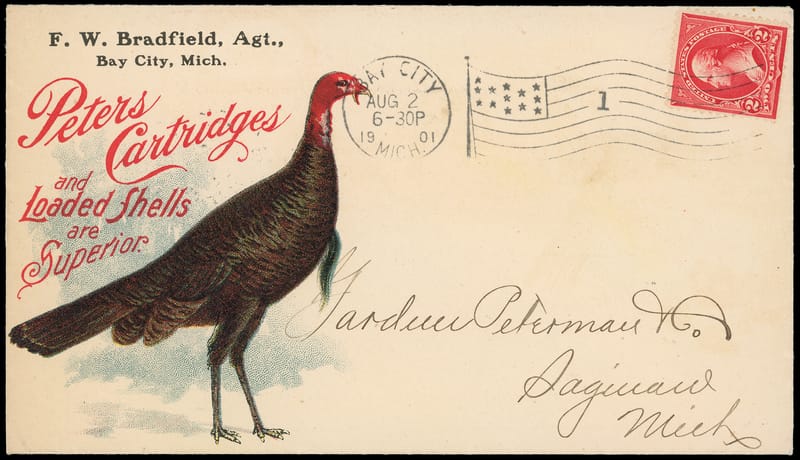 F. W. Bradfield, Agt.,
Bay City, Mich.
Peters
Cartridges
and
Loaded Shells
are
Superior.
BAY CITY
AUG 2
6-30P
19 01
MICH.
1
UNITED STATES POSTAGE
2 2
Peterman & Co.
Saginaw
Mich